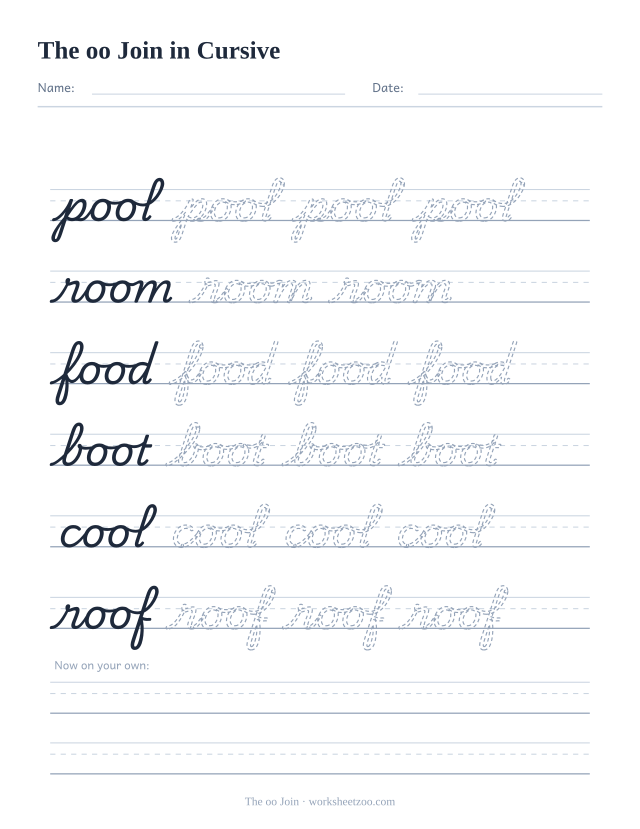 The oo Join in Cursive
Name: Date:
pool pool pool pool
room room room
food food food food
boot boot boot boot
cool cool cool cool
roof roof roof roof
Now on your own:
The oo Join · worksheetzoo.com